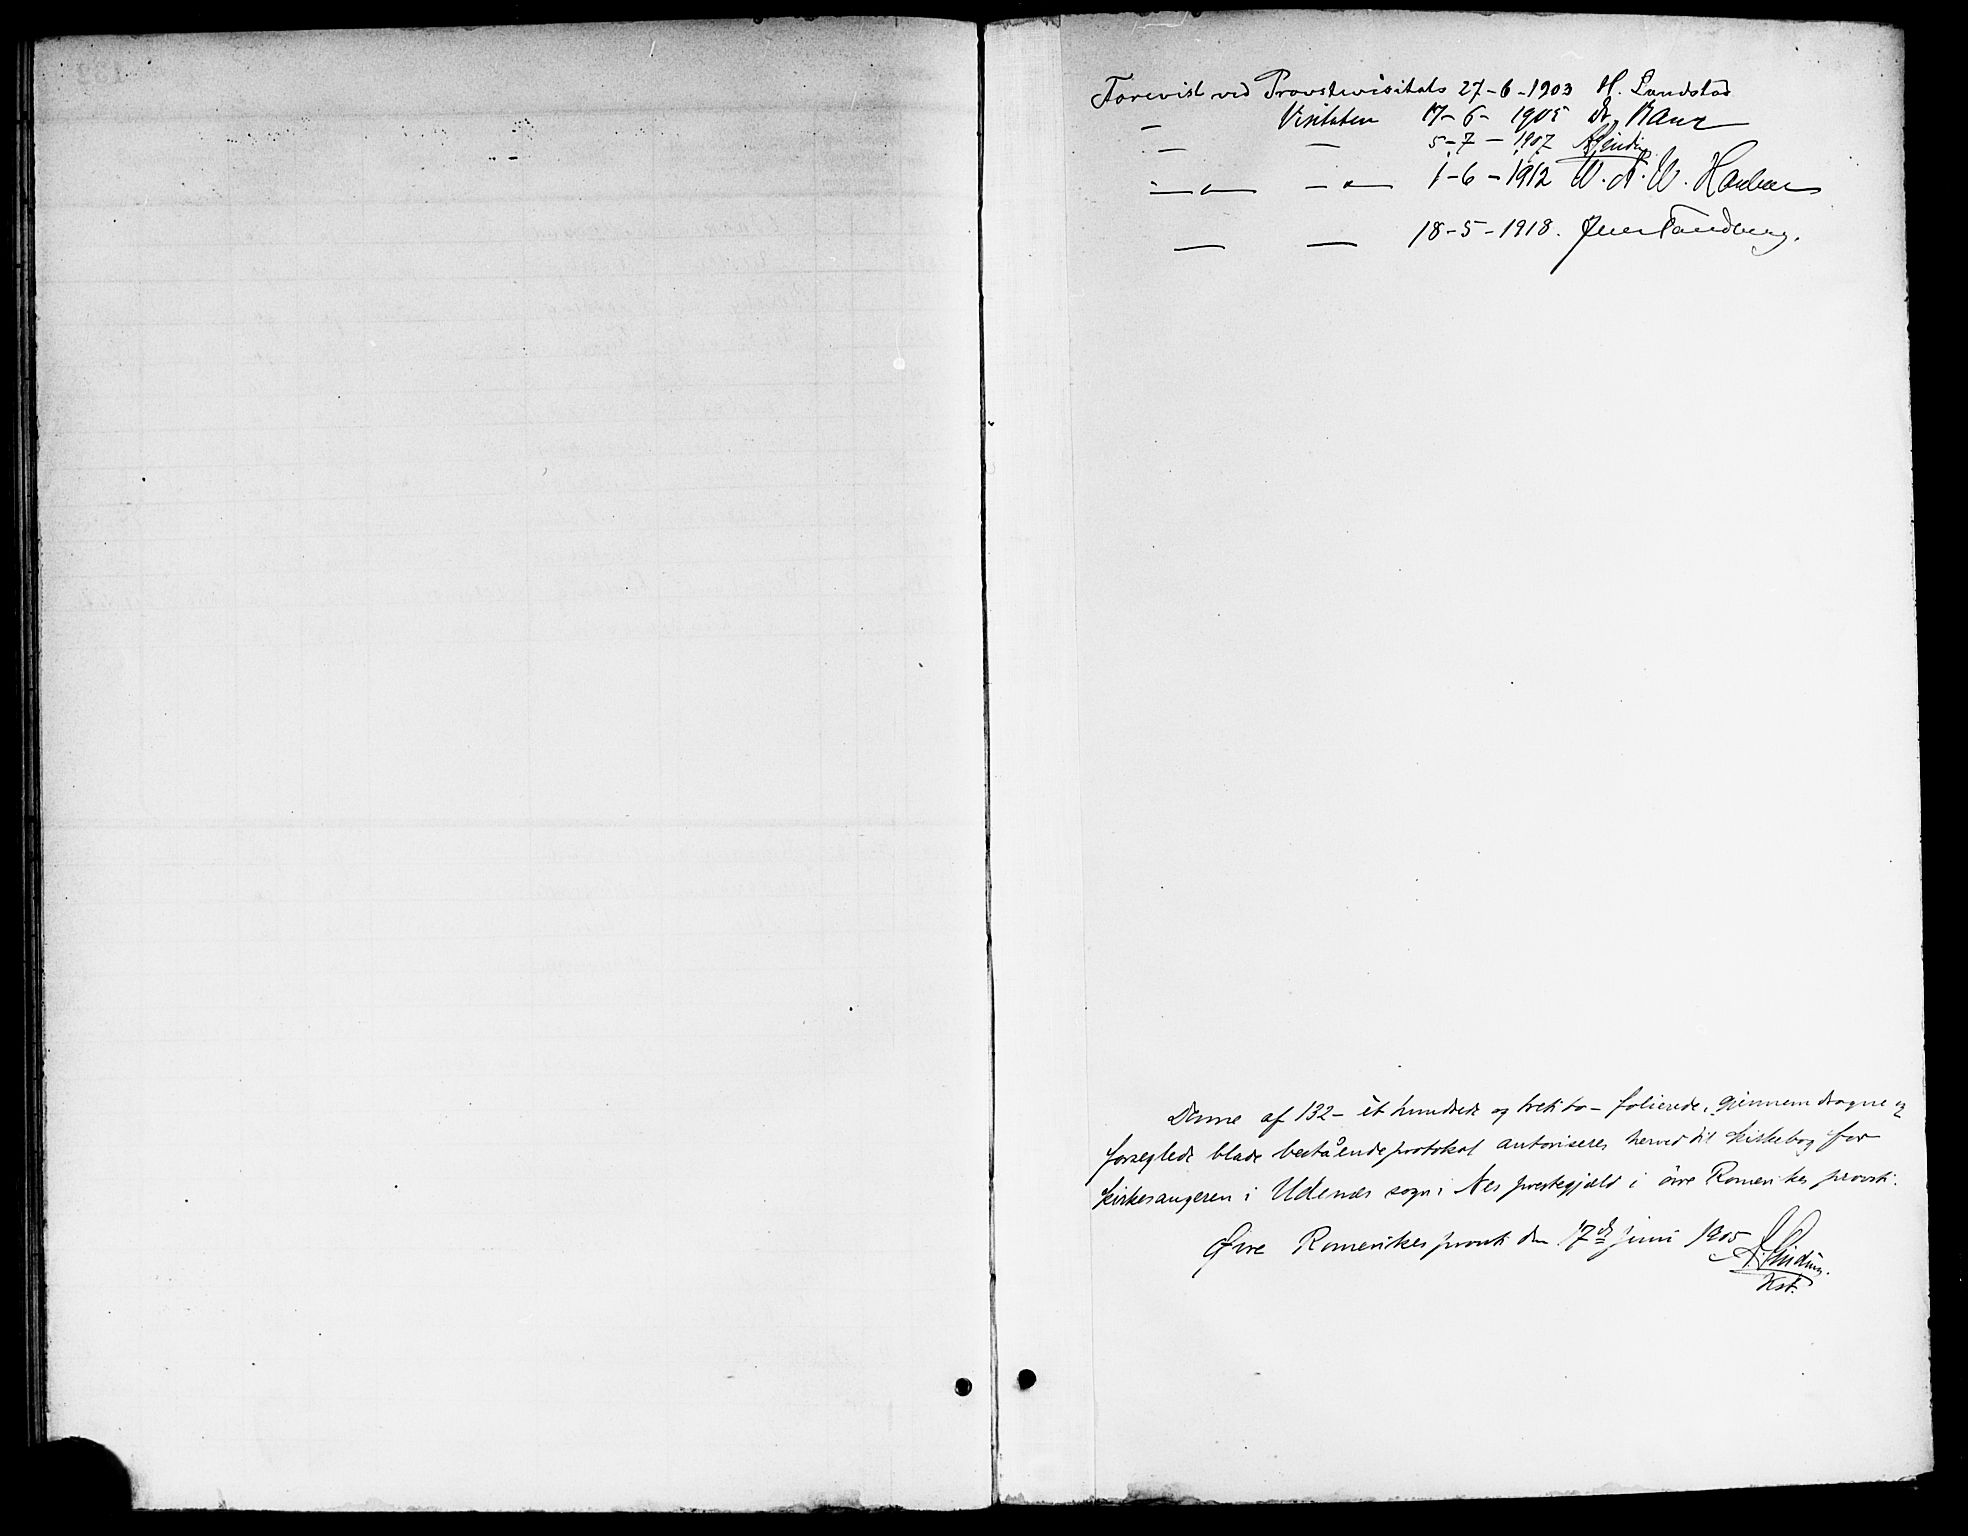 Forevist ved Provstevisitats 27-6-1903 H. Landstad
— Visitatsen 17-6-1905 A. Bang
— — 5-7-1907 A. Sinding
— " — — " — 1-6-1912 W. A. W.
— — 18-5-1918. Jens Tandberg.
Denne af 132 - ét hundrede og treti to - folierede, gjennemdragne og
forseglede blade bestående protokol autoriseres herved til kirkebog for
kirkesangeren i Udenes sogn i Nes prestegjæld i øvre Romerikes provsti.
Øvre Romerikes provsti den 17de juni 1905
A. Sinding.
Kst.